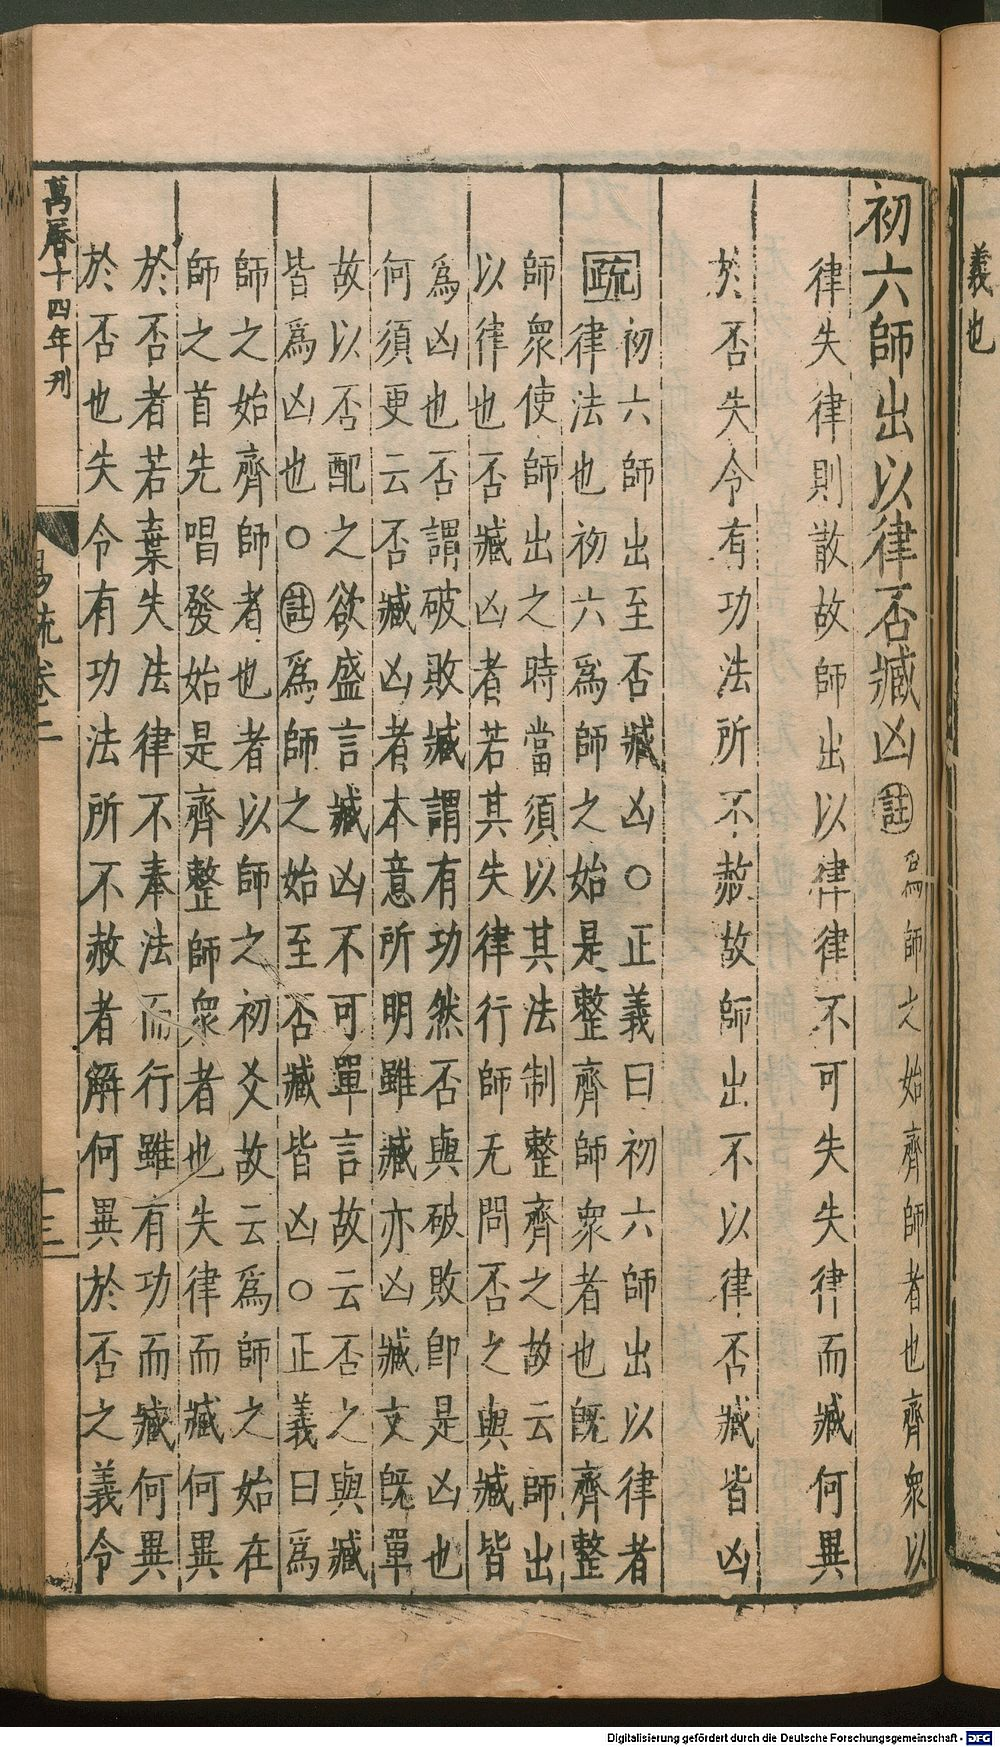 義也
初六師出以律否臧凶註爲師之始齊師者也齊衆以
律失律則散故師出以律律不可失失律而臧何異
於否失令有功法所不赦故師出不以律否臧皆凶
疏初六師出至否臧凶○正義曰初六師出以律者
律法也初六爲師之始是整齊師衆者也既齊整
師衆使師出之時當須以其法制整齊之故云師出
以律也否臧凶者若其失律行師无問否之與臧皆
爲凶也否謂破敗臧謂有功然否與破敗即是凶也
何須更云否臧凶者本意所明雖臧亦凶臧文既單
故以否配之欲盛言臧凶不可單言故云否之與臧
皆爲凶也○註爲師之始至否臧皆凶○正義曰爲
師之始齊師者也者以師之初爻故云爲師之始在
師之首先唱發始是齊整師衆者也失律而臧何異
於否者若棄失法律不奉法而行雖有功而臧何異
於否也失令有功法所不赦者解何異於否之義令
萬曆十四年刋
易疏卷二
十三
Digitalisierung gefördert durch die Deutsche Forschungsgemeinschaft - DFG